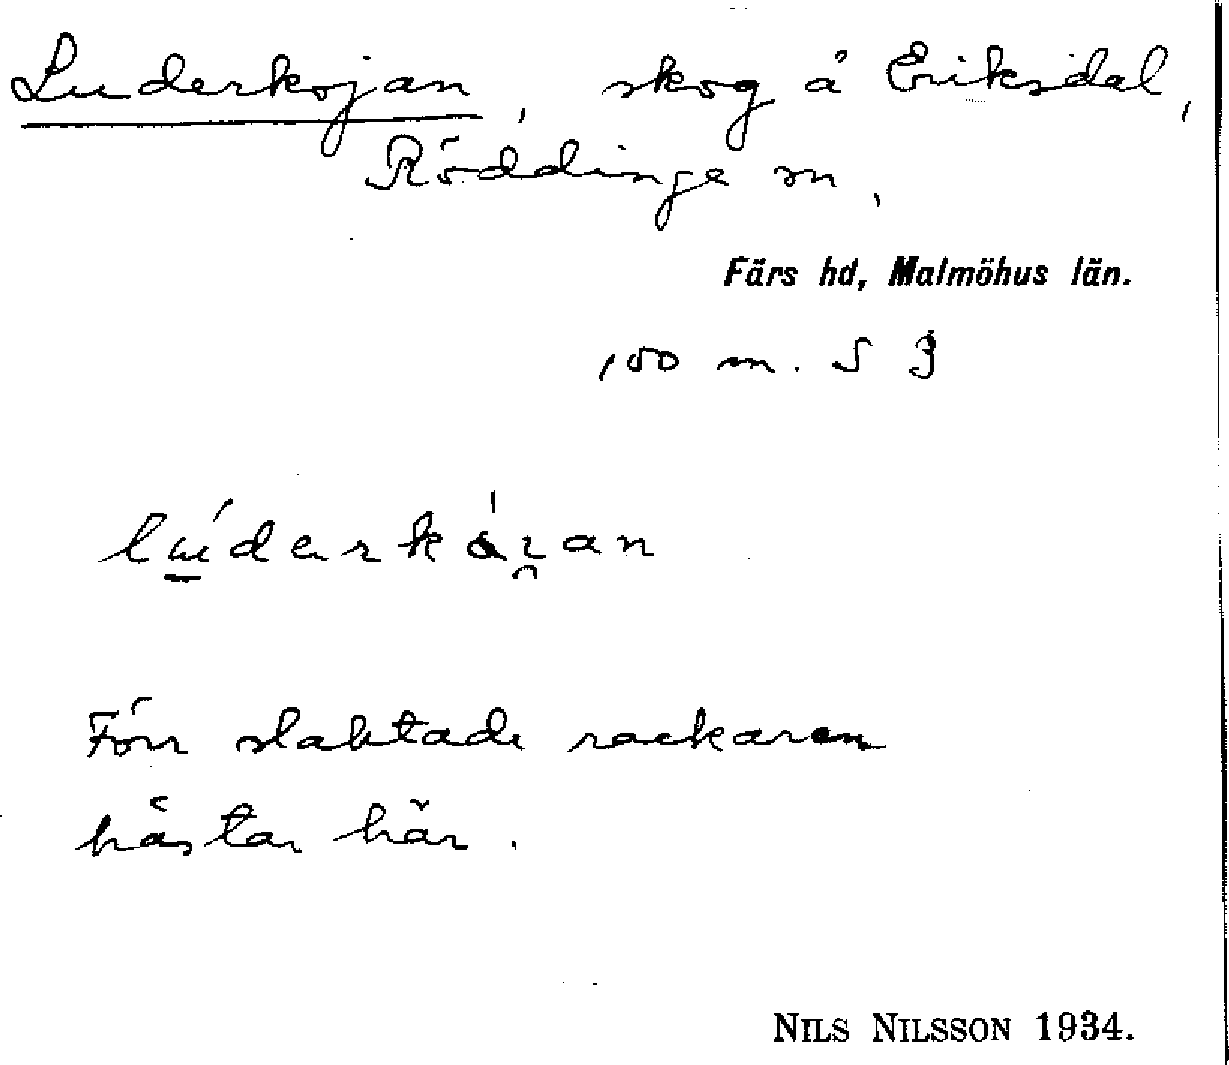 Luderkojan, skog å Eriksdal,
Röddinge sn,
Färs hd, Malmöhus län.
100 m. S 3
Förr slaktade rackaren
hästar här.
NILS NILSSON 1934.